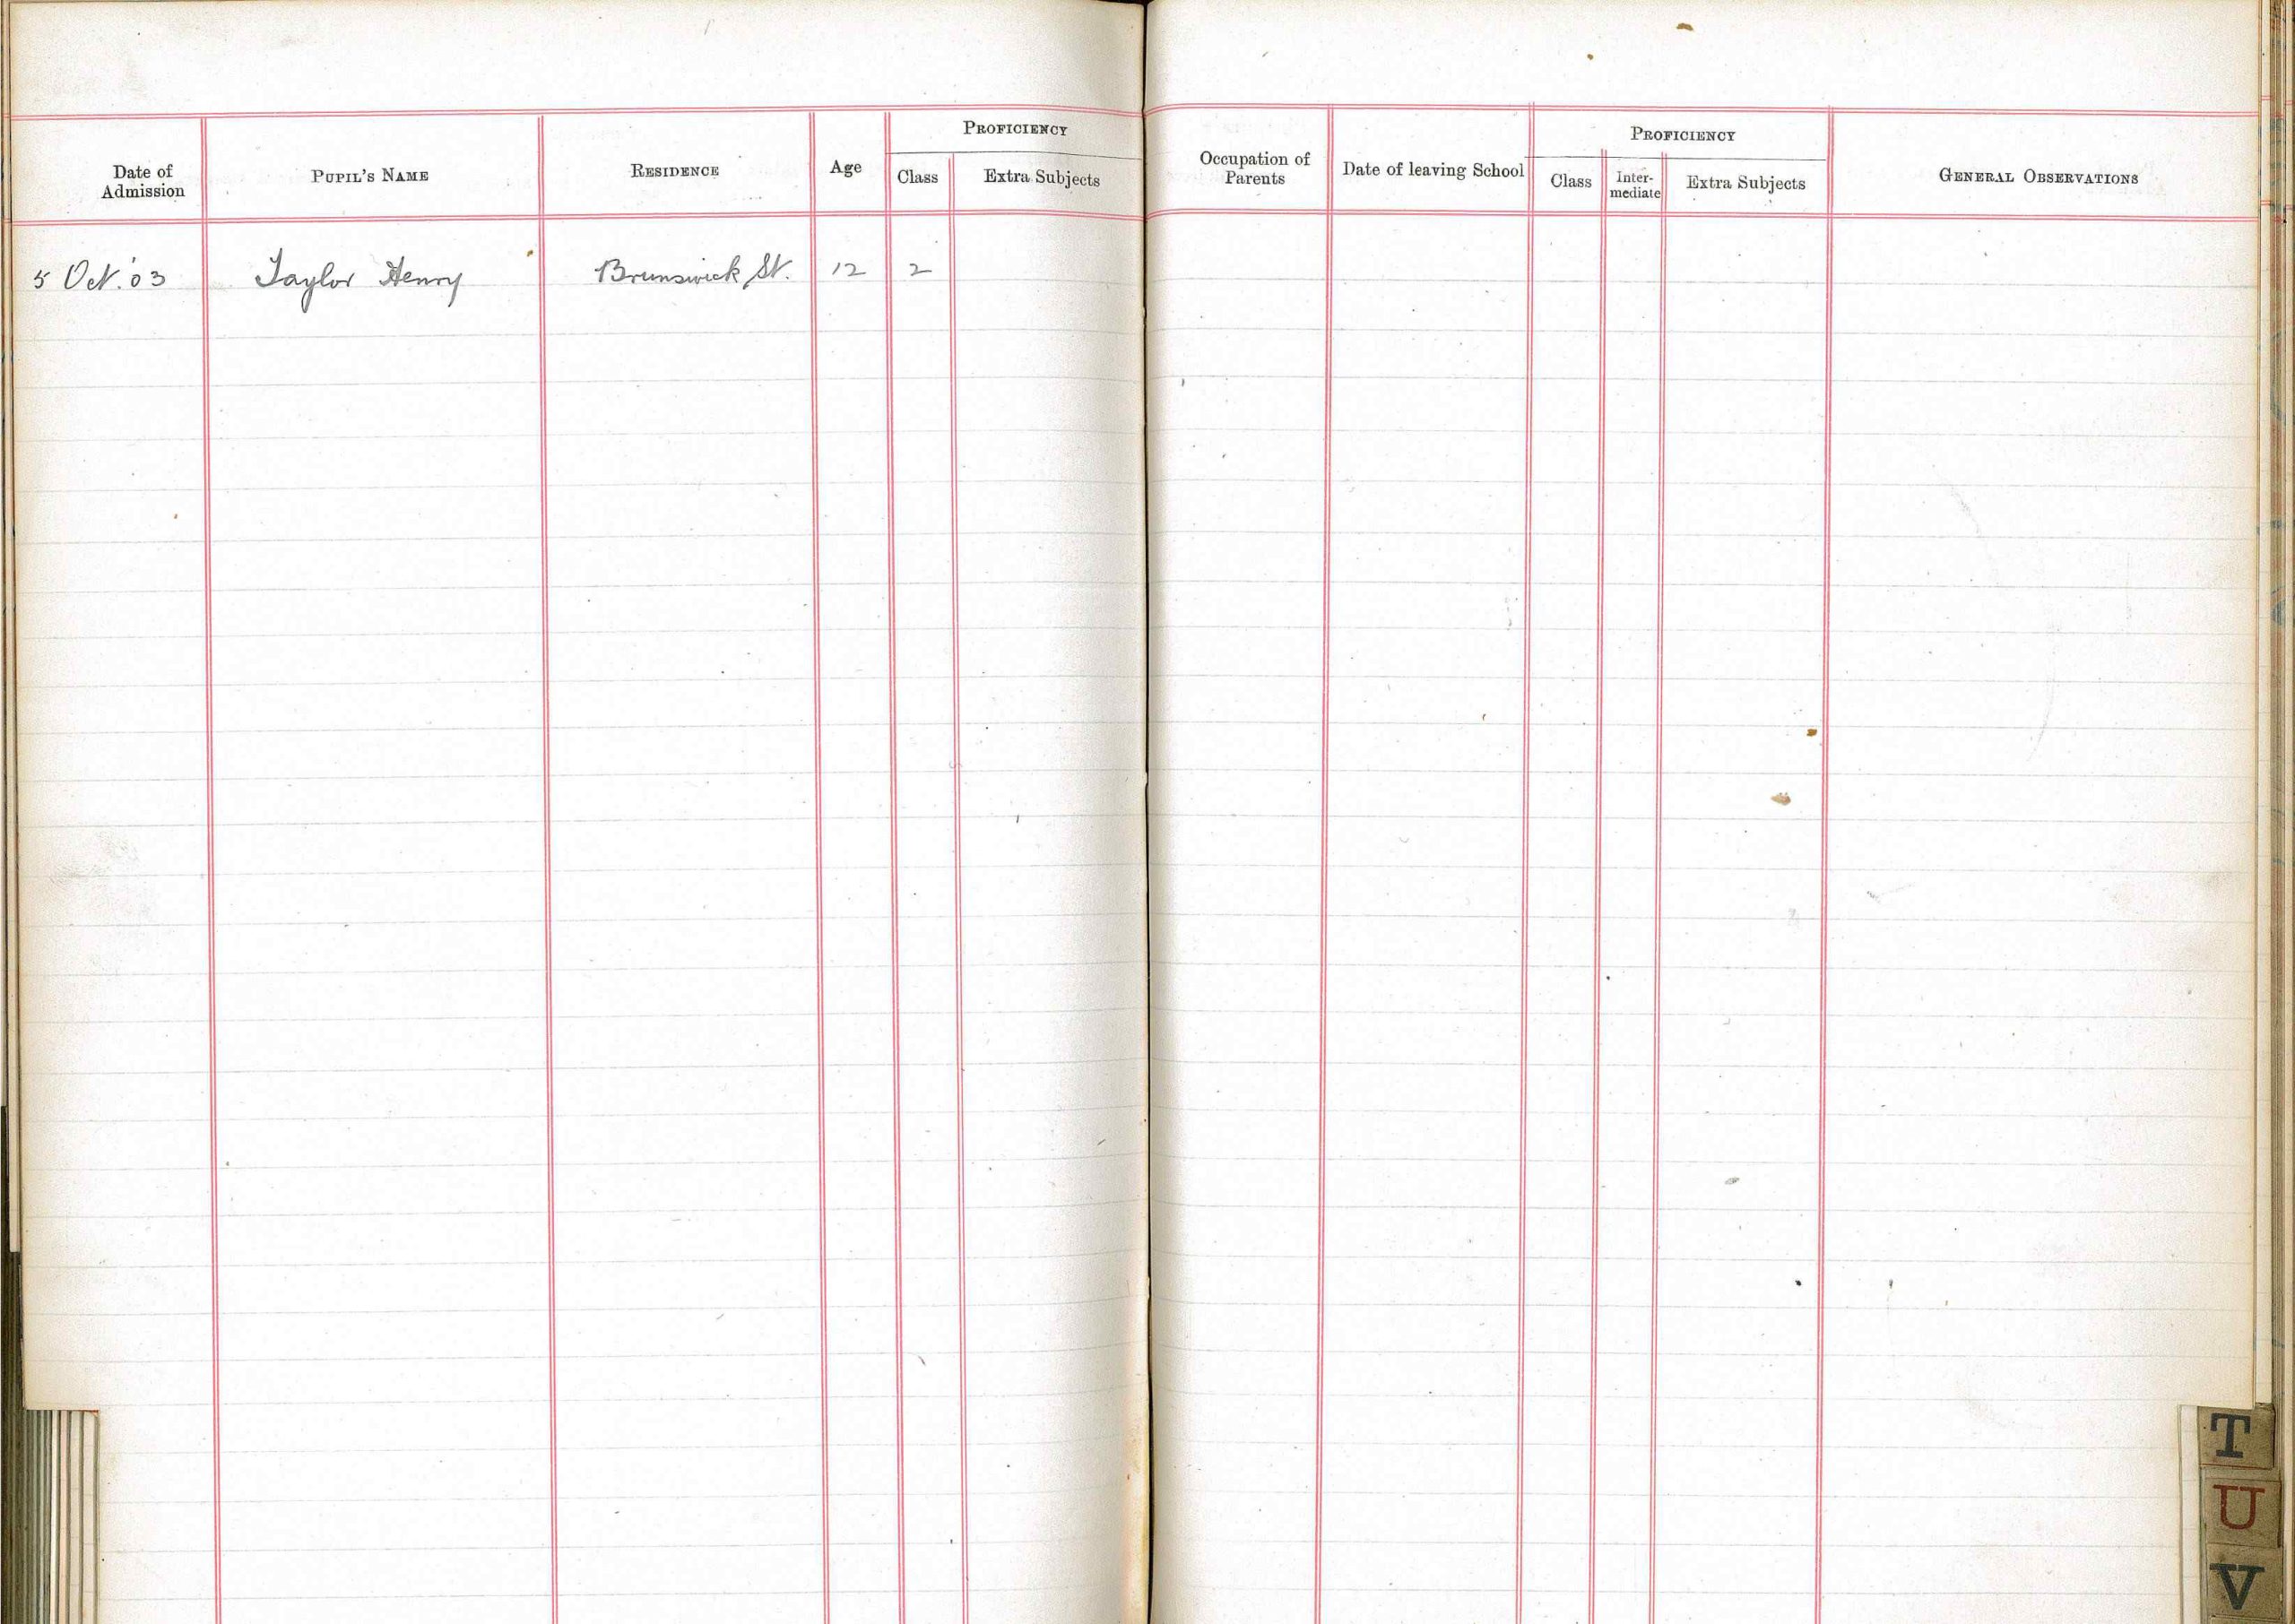 PROFICIENCY
Date of Admission PUPIL'S NAME RESIDENCE Age Class Extra Subjects
5 Oct. '03 Taylor Henry Brunswick St. 12 2
PROFICIENCY
Occupation of Parents Date of leaving School Class Inter-mediate Extra Subjects GENERAL OBSERVATIONS
T
U
V